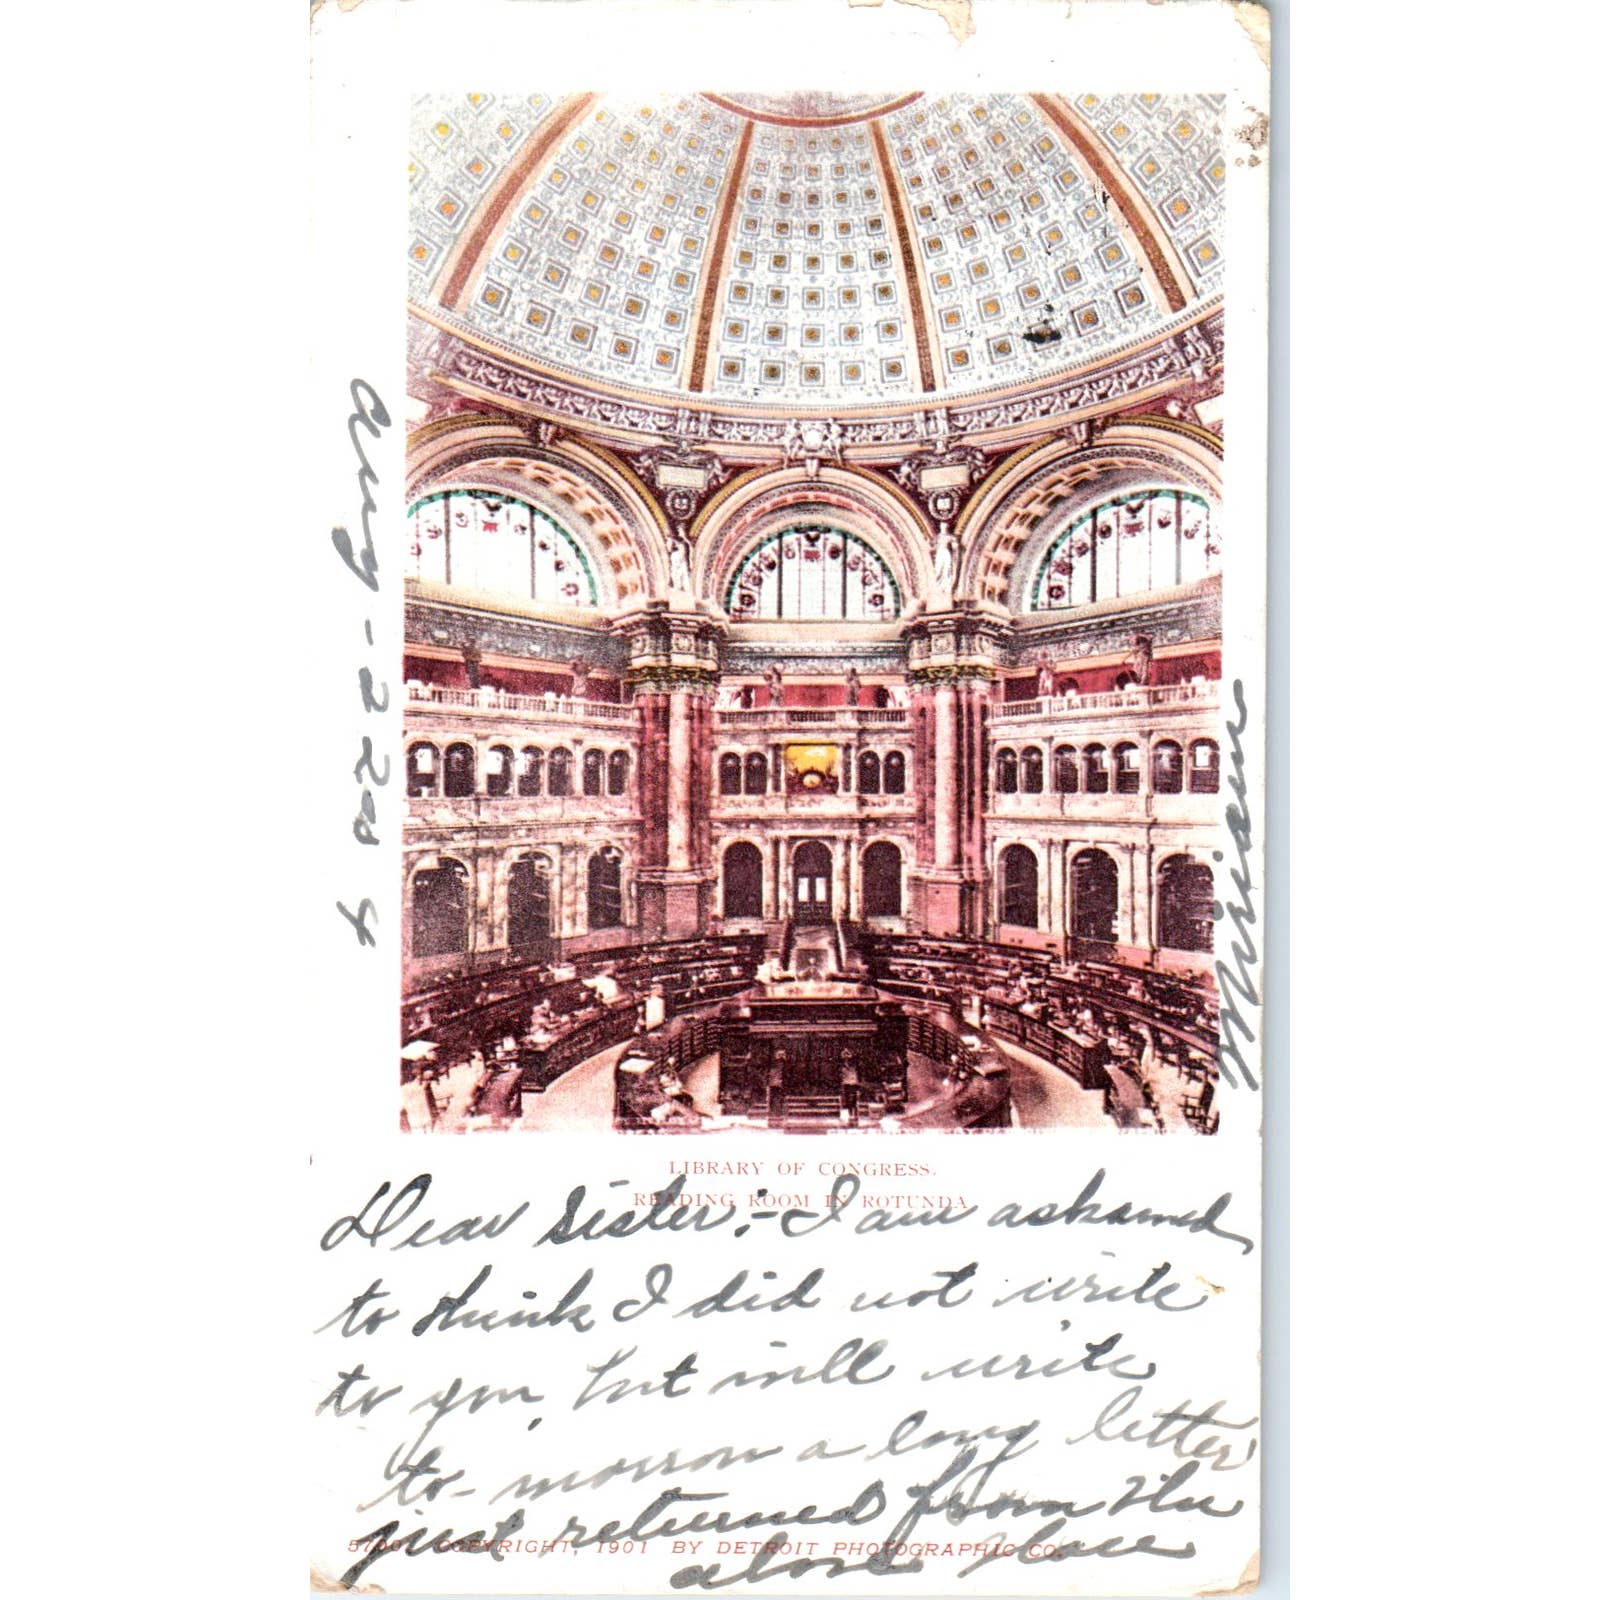 LIBRARY OF CONGRESS.
READING ROOM IN ROTUNDA
Dear Sister:- I am ashamed
to think I did not write
to you, but will write
to-morrow a long letter
just returned from the
above place
Miriam
Aug - 22nd 4
COPYRIGHT, 1901 BY DETROIT PHOTOGRAPHIC CO.